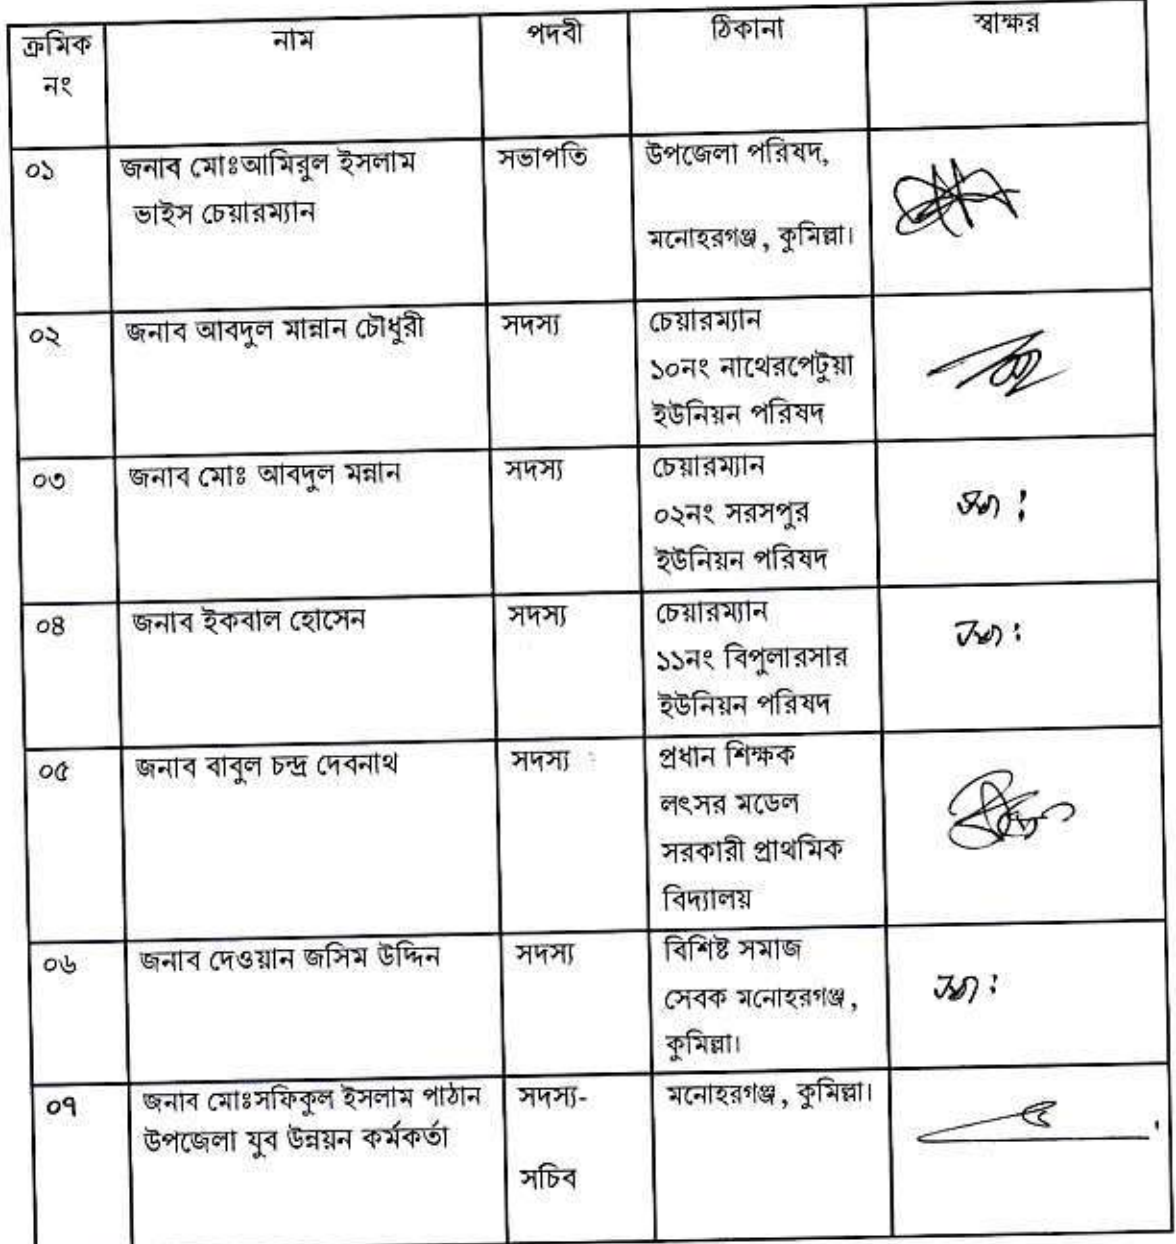 ক্রমিক নং নাম পদবী ঠিকানা স্বাক্ষর
০১ জনাব মোঃআমিরুল ইসলাম সভাপতি উপজেলা পরিষদ,
ভাইস চেয়ারম্যান মনোহরগঞ্জ, কুমিল্লা।
০২ জনাব আবদুল মান্নান চৌধুরী সদস্য চেয়ারম্যান
১০নং নাথেরপেটুয়া
ইউনিয়ন পরিষদ
০৩ জনাব মোঃ আবদুল মন্নান সদস্য চেয়ারম্যান
০২নং সরসপুর
ইউনিয়ন পরিষদ
০৪ জনাব ইকবাল হোসেন সদস্য চেয়ারম্যান
১১নং বিপুলারসার
ইউনিয়ন পরিষদ
০৫ জনাব বাবুল চন্দ্র দেবনাথ সদস্য প্রধান শিক্ষক
লৎসর মডেল
সরকারী প্রাথমিক
বিদ্যালয়
০৬ জনাব দেওয়ান জসিম উদ্দিন সদস্য বিশিষ্ট সমাজ
সেবক মনোহরগঞ্জ,
কুমিল্লা।
০৭ জনাব মোঃসফিকুল ইসলাম পাঠান সদস্য- মনোহরগঞ্জ, কুমিল্লা।
উপজেলা যুব উন্নয়ন কর্মকর্তা
সচিব